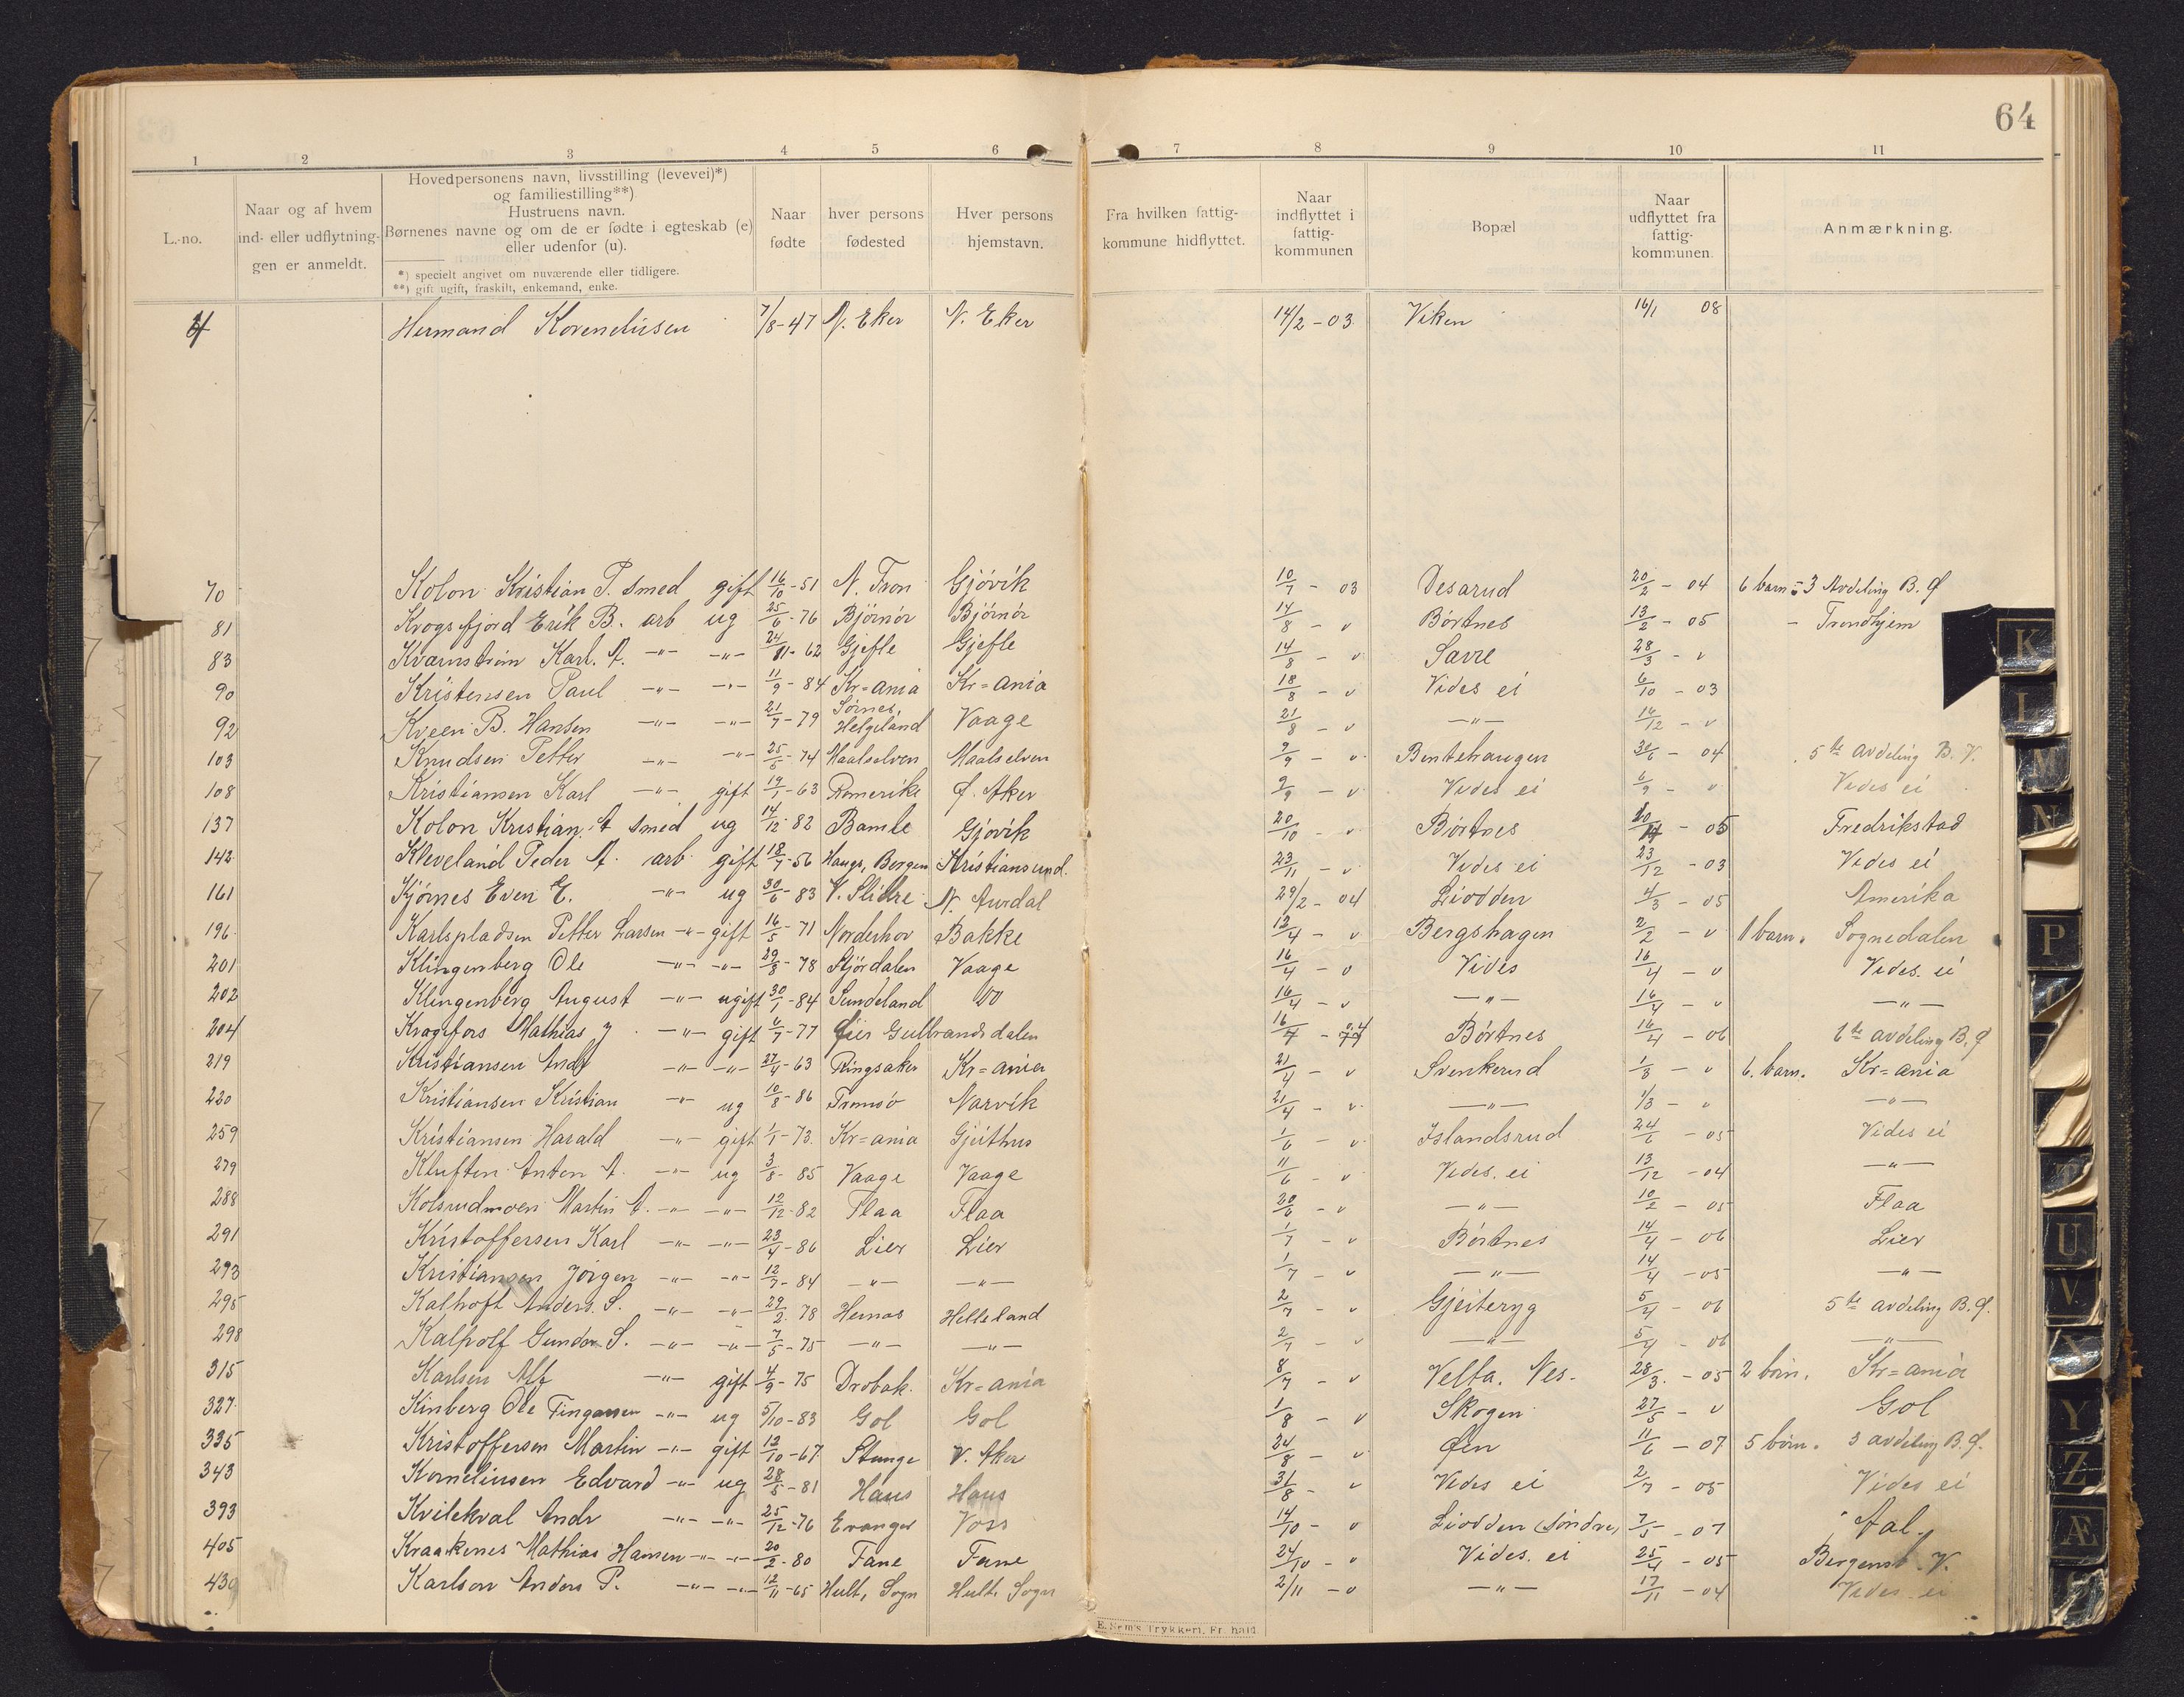 64
1 2 3 4 5 6 7 8 9 10 11
L.-no.
Naar og af hvem
ind- eller udflytnin-
gen er anmeldt.
Hovedpersonens navn, livsstilling (levevei)*)
og familiestilling**)
Hustruens navn.
Børnenes navne og om de er fødte i egteskab (e)
eller udenfor (u).
*) specielt angivet om nuværende eller tidligere.
**) gift ugift, fraskilt, enkemand, enke.
Naar
fødte
hver persons
fødested
Hver persons
hjemstavn.
Fra hvilken fattig-
kommune hidflyttet.
Naar
indflyttet i
fattig-
kommunen
Bopæl
Naar
udflyttet fra
fattig-
kommunen.
Anmærkning.
4 Hermand Korneliusen 7/8-47 N. Eker N. Eker 14/2-03 Viken 16/1 08
70 Kolon Kristian P. smed gift 16/10-51 N. Fron Gjövik 10/7-03 Desarud 20/2-04 6 barn 3 Avdeling B. Ø
81 Krogsfjord Erik B. arb ug 25/6-76 Bjørnør Bjørnør 14/8-" Börtnes 13/2-05 - Trondhjem
83 Kvarnström Karl. A. -"- -"- 24/11-62 Gjefle Gjefle 14/8-" Savre 28/3-"
90 Kristensen Paul -"- -"- 11/9-84 Kr=ania Kr=ania 18/8-" Vides ei 6/10-03
92 Kveen B. Hansen -"- -"- 21/7-79 Sørnes, Helgeland Vaage 21/8-" -"- 14/12-"
103 Knudsen Petter -"- -"- 25/5-74 Maalselven Maalselven 9/9-" Bentehaugen 30/6-04 5te avdeling B. V.
108 Kristiansen Karl -"- gift 19/1-63 Romerike Ø. Aker 9/9-" Vides ei 6/9-" Vides ei
137 Kolon Kristian. A smed ug 14/12-82 Bamle Gjövik 20/10-" Börtnes -05 Fredrikstad
142 Kleveland Peder A. arb. gift 18/7-56 Haugs, Bergen Kristiansund. 23/11-" Vides ei 23/12-03 Vides ei
161 Kjörnes Even E. -"- ug 30/6-83 V. Slidre N. Aurdal 29/2-04 Liodden 4/3-05 Amerika
196 Karlspladsen Petter Larsen -"- gift 16/5-71 Norderhov Bakke 13/4-" Bergshagen 2/2-" 1 barn. Sognedalen
201 Klingenberg Ole -"- -"- 29/8-78 Stjördalen Vaage 16/4-" Vides 16/4-" Vides. ei
202 Klingenberg August -"- ugift 30/1-84 Sundeland do 16/4-" -"- 16/4-" -"-
204 Krogsfors Mathias J. -"- gift 6/7-77 Øier Gulbrandsdalen 16/4-04 Börtnes 16/4-06 6te avdeling B. Ø
219 Kristiansen Andr -"- -"- 27/4-63 Ringsaker Kr=ania 21/4-" Svenkerud 1/8-" 6. barn. Kr=ania
220 Kristiansen Kristian -"- ug 10/8-86 Tromsö Narvik 21/4-" -"- 1/8-" -"-
259 Kristiansen Harald -"- gift 1/1-73. Kr=ania Gjeithus 1/6-" Islandsrud 24/6-05 Vides ei
279 Kluften Anton A. -"- ug 3/8-85 Vaage Vaage 11/6-" Vides. ei 13/12-04 -"-
288 Kolsrudmoen Martin A. -"- -"- 12/12-82 Flaa Flaa 20/6-" -"- 10/2-05 Flaa
291 Kristoffersen Karl -"- -"- 23/4-86 Lier Lier 1/7-" Börtnes 14/4-06 Lier
293 Kristiansen Jörgen -"- -"- 12/7-84 -"- -"- 1/7-" -"- 14/4-05 -"-
295 Kalhoft Anders. S. -"- -"- 29/2-78 Hemas Helleland 2/7-" Gjeiteryg 5/4-06 5te avdeling B. Ø.
298 Kalholf Gunder S. -"- -"- 7/5-75 -"- -"- 2/7-" -"- 5/4-06 -"-
315 Karlsen Alf -"- gift 4/9-75 Drobak. Kr=ania 8/7-" Velta. Nes. 28/3-05 2 börn. Kr=ania
327. Kinberg Ole Fingarsen -"- ug 5/10-83 Gol Gol 1/8-" Skogen 27/5-" Gol
335 Kristoffersen Martin -"- gift 12/10-67 Stange V. Aker 24/8-" Øen 11/6-07 5 börn. 3 avdeling B. Ø.
343 Korneliussen Edvard -"- ug 28/5-81 Haus Haus 31/8-" Vides ei 2/7-05 Vides ei
393 Kvilekval Andr -"- -"- 25/12-76 Evanger Voss 14/10-" Liodden (söndre) 7/5-07 Aal.
405 Kraakenes Mathias Hansen -"- -"- 20/2-80 Fane Fane 24/10-" Vides. ei 25/4-05 Bergenst. V.
439 Karlson Anders P. -"- -"- 12/11-65 Hult, Sogn Hult. Sogn 2/11-" -"- 17/11-04 Vides ei
E. Sem's Trykkeri, Fr. hald.
K
L
M
N
P
T
U
V
X
Y
Z
Æ